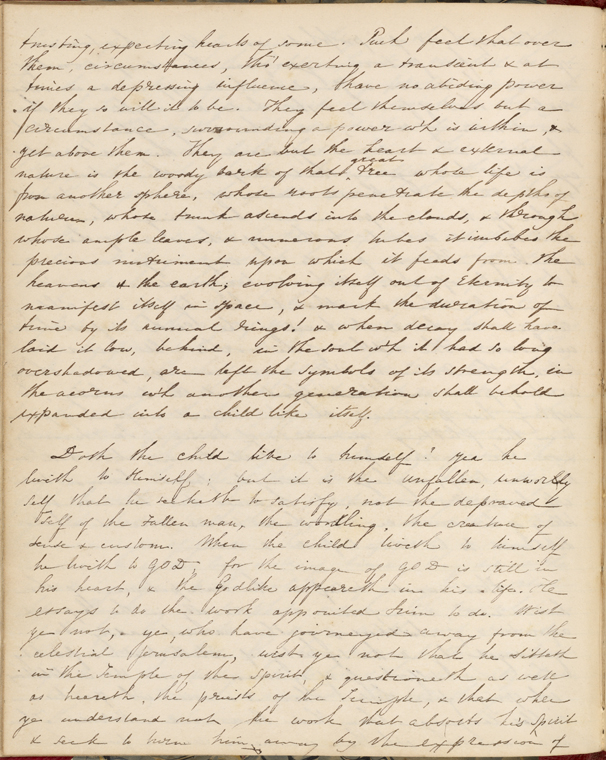 trusting, expecting hearts of some. Such feel that over
them, circumstances, tho' exerting a transient & at
times a depressing influence, have no abiding power
if they so will it to be. They feel themselves but a
circumstance, surrounding a power wh is within, &
yet above them. They are but the heart & external
nature is the woody bark of that great Tree whose life is
from another sphere, whose roots penetrate the depths of
nature, whose trunk ascends into the clouds, & through
whose ample leaves, & numerous tubes it imbibes the
precious nutriment upon which it feeds from the
heavens & the earth; evolving itself out of Eternity to
manifest itself in space, & mark the duration of
time by its annual rings! & when decay shall have
laid it low, behind, in the soul wh it had so long
overshadowed, are left the symbols of its strength, in
the acorns wh another generation shall behold
expanded into a child like itself.
Doth the child live to himself? yea he
liveth to Himself; but it is the unfallen, unworldly
self that he seeketh to satisfy, not the depraved
self of the Fallen man, the worldling, the creature of
sense & custom. When the child liveth to himself
he liveth to GOD; for the image of GOD is still in
his heart, & the Godlike appeareth in his life. He
essays to do the work appointed him to do. Wist
ye not, ye, who have journeyed away from the
celestial Jerusalem, wist ye not that he sitteth
in the Temple of the Spirit, & questioneth as well
as heareth, the priests of the Temple, & that when
ye understand not the work that absorbs his Spirit
& seek to turn him away by the expression of